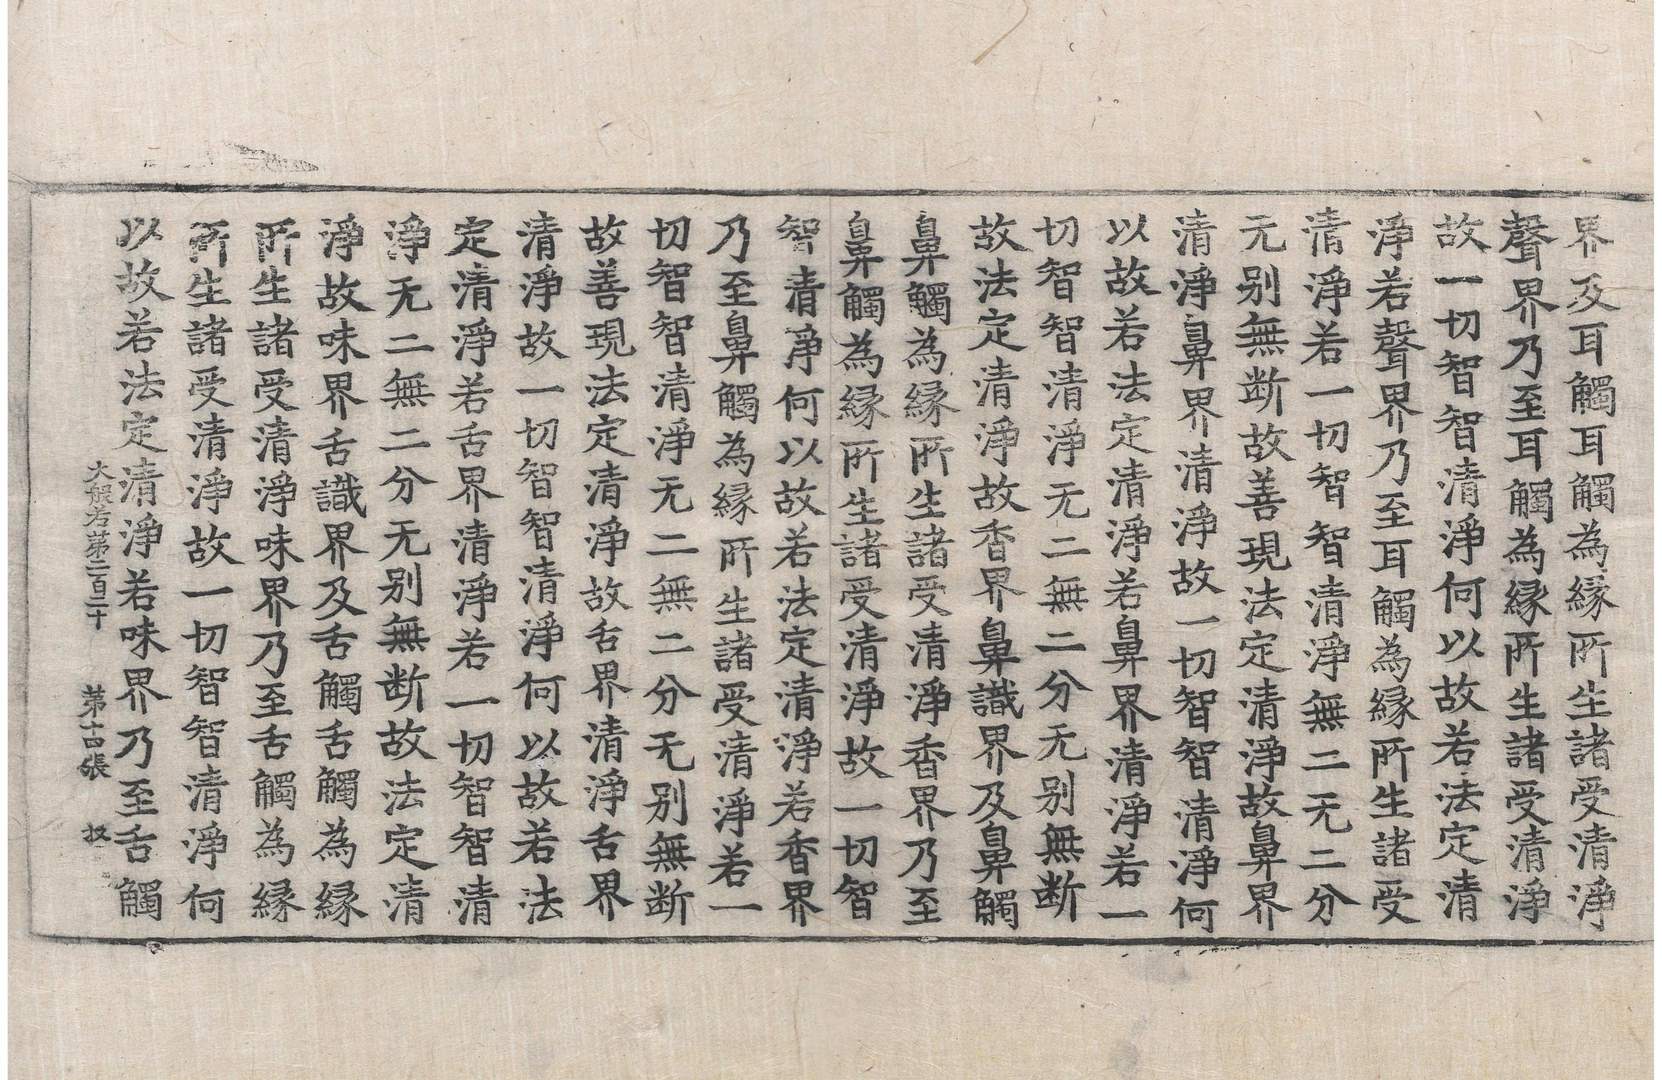 界及耳觸耳觸為縁所生諸受清淨
聲界乃至耳觸為縁所生諸受清淨
故一切智智清淨何以故若法定清
淨若聲界乃至耳觸為縁所生諸受
清淨若一切智智清淨無二无二分
无别無断故善現法定清淨故鼻界
清淨鼻界清淨故一切智智清淨何
以故若法定清淨若鼻界清淨若一
切智智清淨无二無二分无别無断
故法定清淨故香界鼻識界及鼻觸
鼻觸為縁所生諸受清淨香界乃至
鼻觸為縁所生諸受清淨故一切智
智清淨何以故若法定清淨若香界
乃至鼻觸為縁所生諸受清淨若一
切智智清淨无二無二分无别無断
故善現法定清淨故舌界清淨舌界
清淨故一切智智清淨何以故若法
定清淨若舌界清淨若一切智智清
淨无二無二分无别無断故法定清
淨故味界舌識界及舌觸舌觸為縁
所生諸受清淨味界乃至舌觸為縁
所生諸受清淨故一切智智清淨何
以故若法定清淨若味界乃至舌觸
大般若苐二百二十 苐十四張